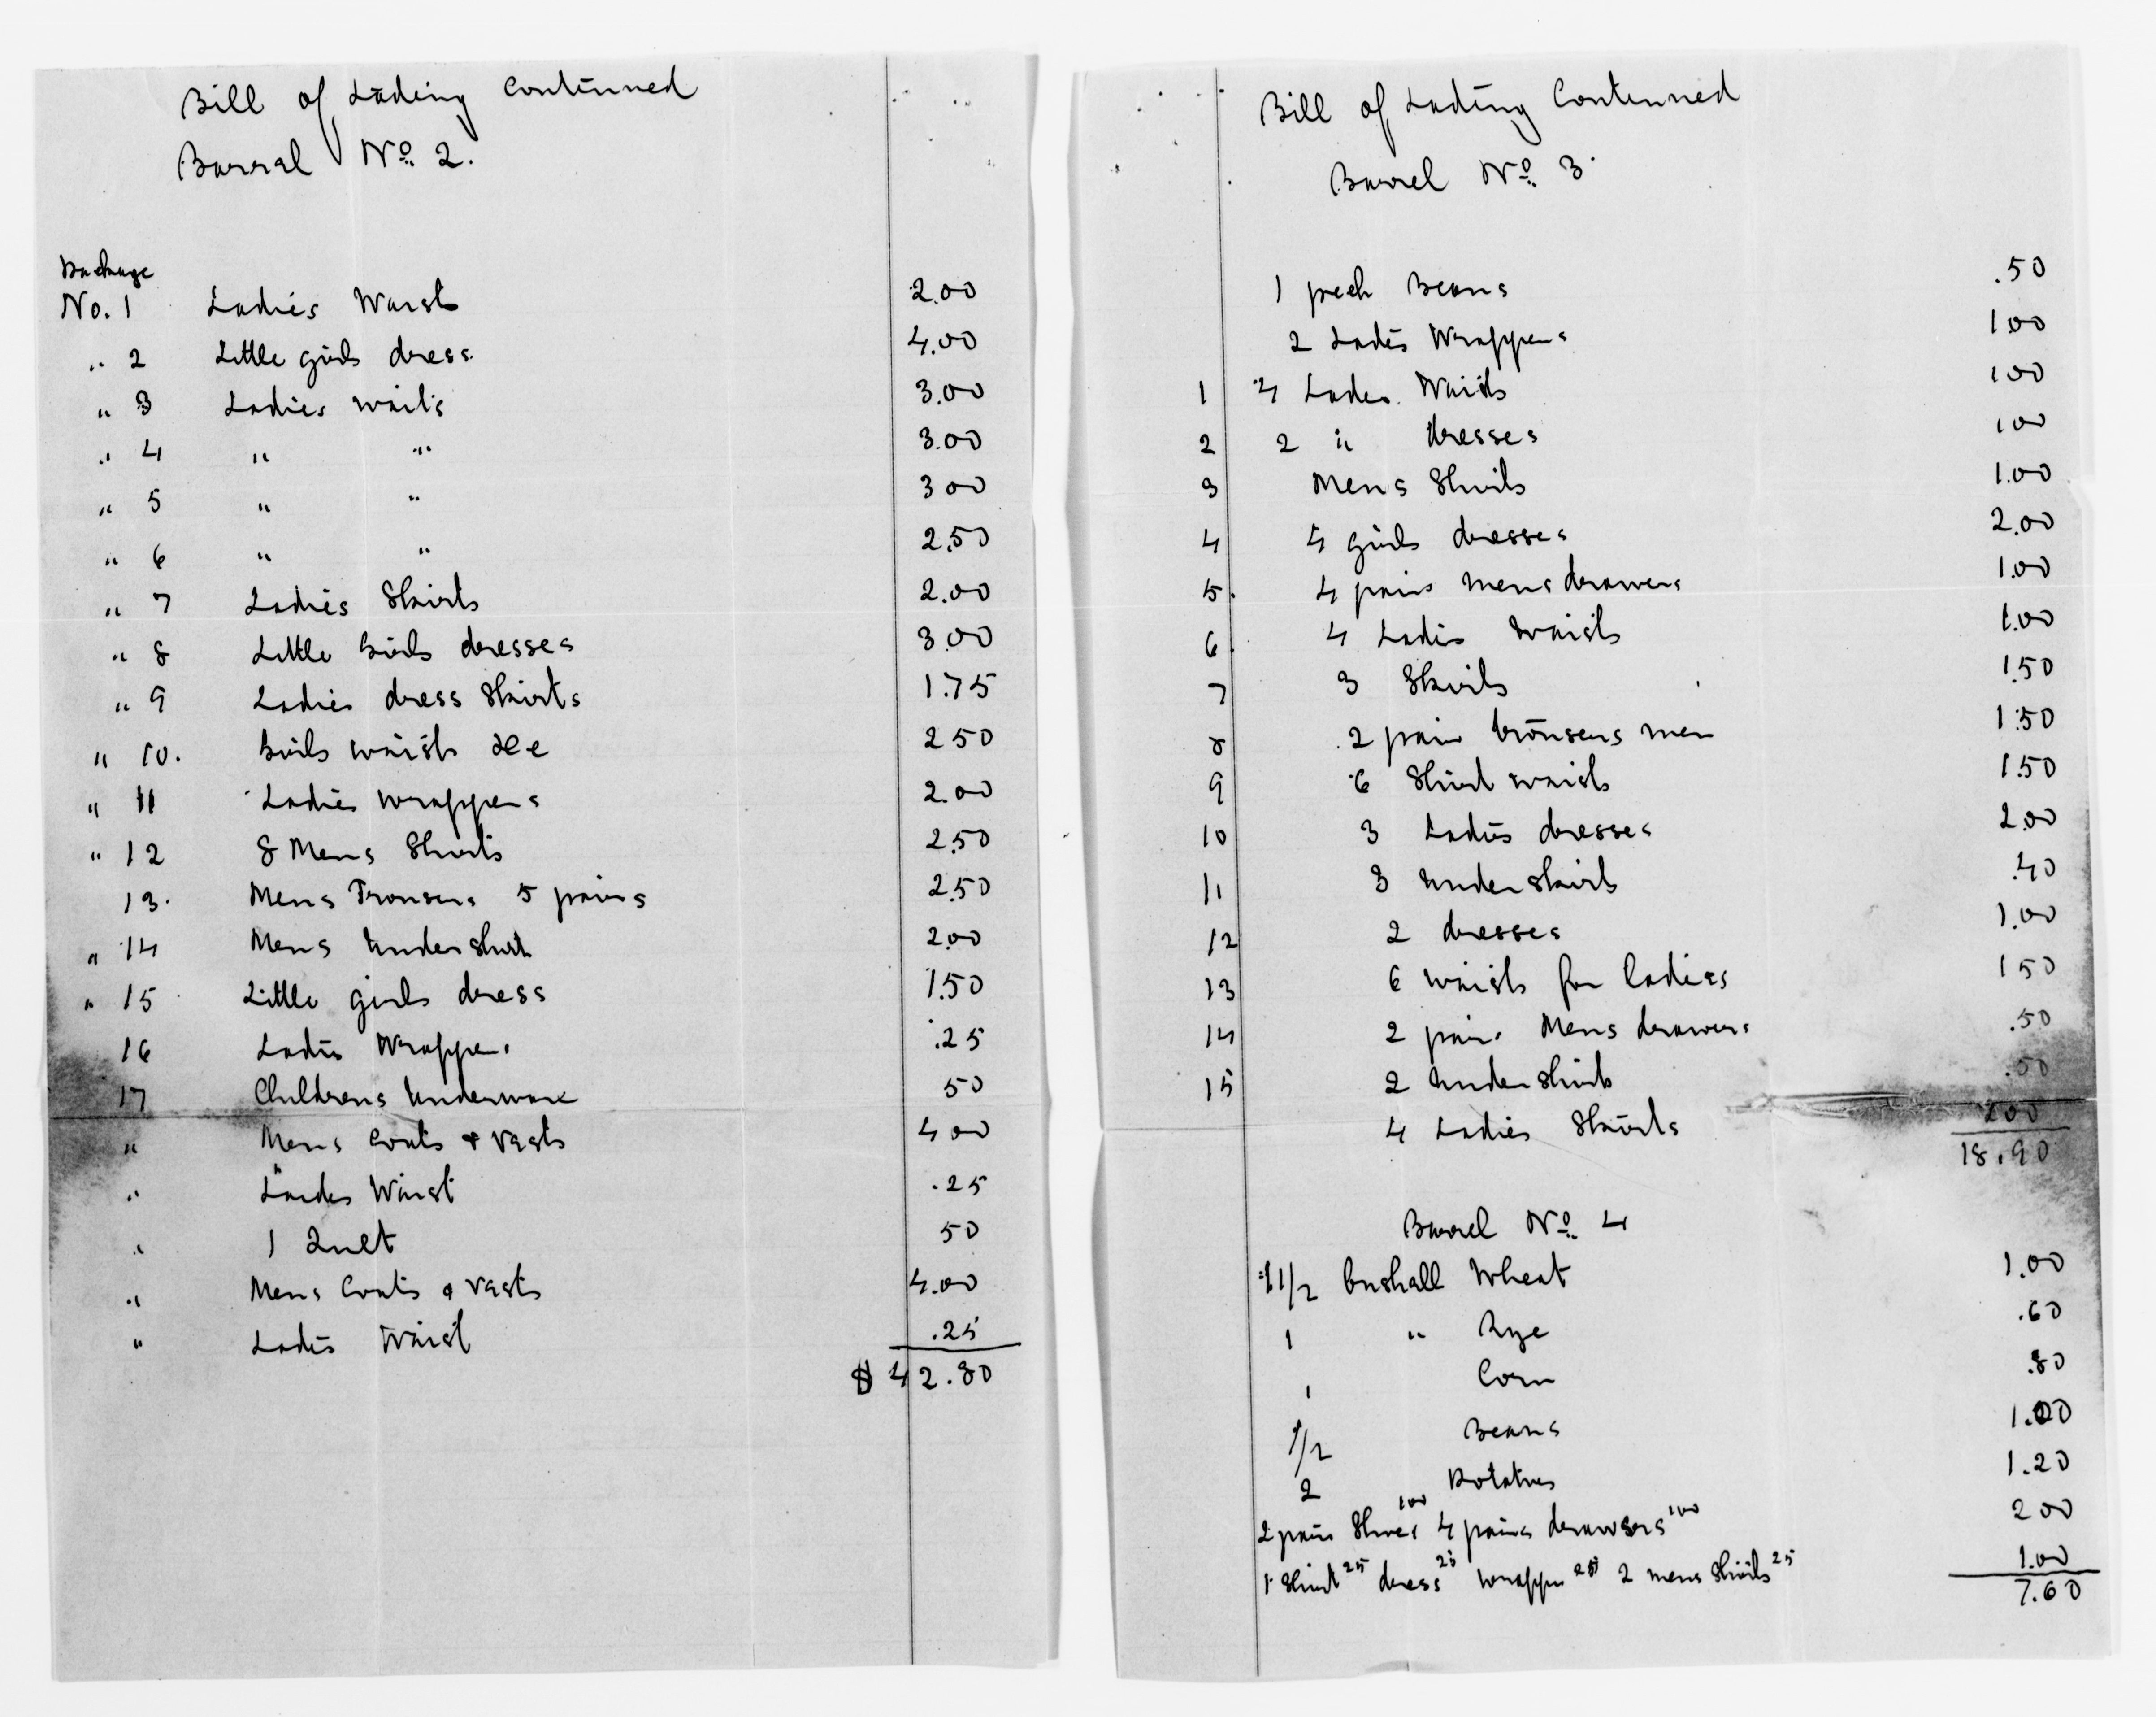 Bill of Lading Continued
Barral No. 2.
Package
No. 1 Ladies Waist 2.00
" 2 Little girls dress 4.00
" 3 Ladies waits 3.00
" 4 " " 3.00
" 5 " " 3 00
" 6 " " 2.50
" 7 Ladies Skirts 2.00
" 8 Little Girls dresses 3.00
" 9 Ladies dress Skirts 1.75
" 10. Girls waists &c 2 50
" 11 Ladies wrappers 2.00
" 12 8 Mens Shirts 2.50
13. Mens Trousers 5 pairs 2.50
" 14 Mens Undershirt 2.00
" 15 Little girls dress 1.50
16 Ladies Wrapper .25
17 Childrens Underware 50
" Mens Coats & Vests 4 00
" Laides Waist .25
" 1 Quilt 50
" Mens Coats & Vests 4.00
" Ladies Waist .25
$ 42.80
Bill of Lading Continued
Barrel No. 3.
1 peck Beans .50
2 Ladies Wrappers 1 00
1 4 Ladies Waists 1 00
2 2 " dresses 1 00
3 Mens Shirts 1.00
4 4 girls dresses 2.00
5. 4 pairs mens drawers 1.00
6 4 Ladies Waists 1.00
7 3 Skirts 1.50
8 2 pair trousers men 1.50
9 6 Shirt waists 1.50
10 3 Ladies dresses 2.00
11 3 Underskirts .40
12 2 dresses 1.00
13 6 waists for ladies 1 50
14 2 pairs Mens drawers .50
15 2 Undershirts .50
4 Ladies Skirts 2 00
18.90
Barrel No. 4
1 1/2 bushall Wheat 1.00
1 " Rye .60
1 Corn .80
1/2 Beans 1.00
2 Potatoes 1.20
2 pair Shoes 100 4 pairs drawers 100 2 00
1 Shirt 25 dress 25 wrapper 25 2 mens Shirts 25 1.00
7.60